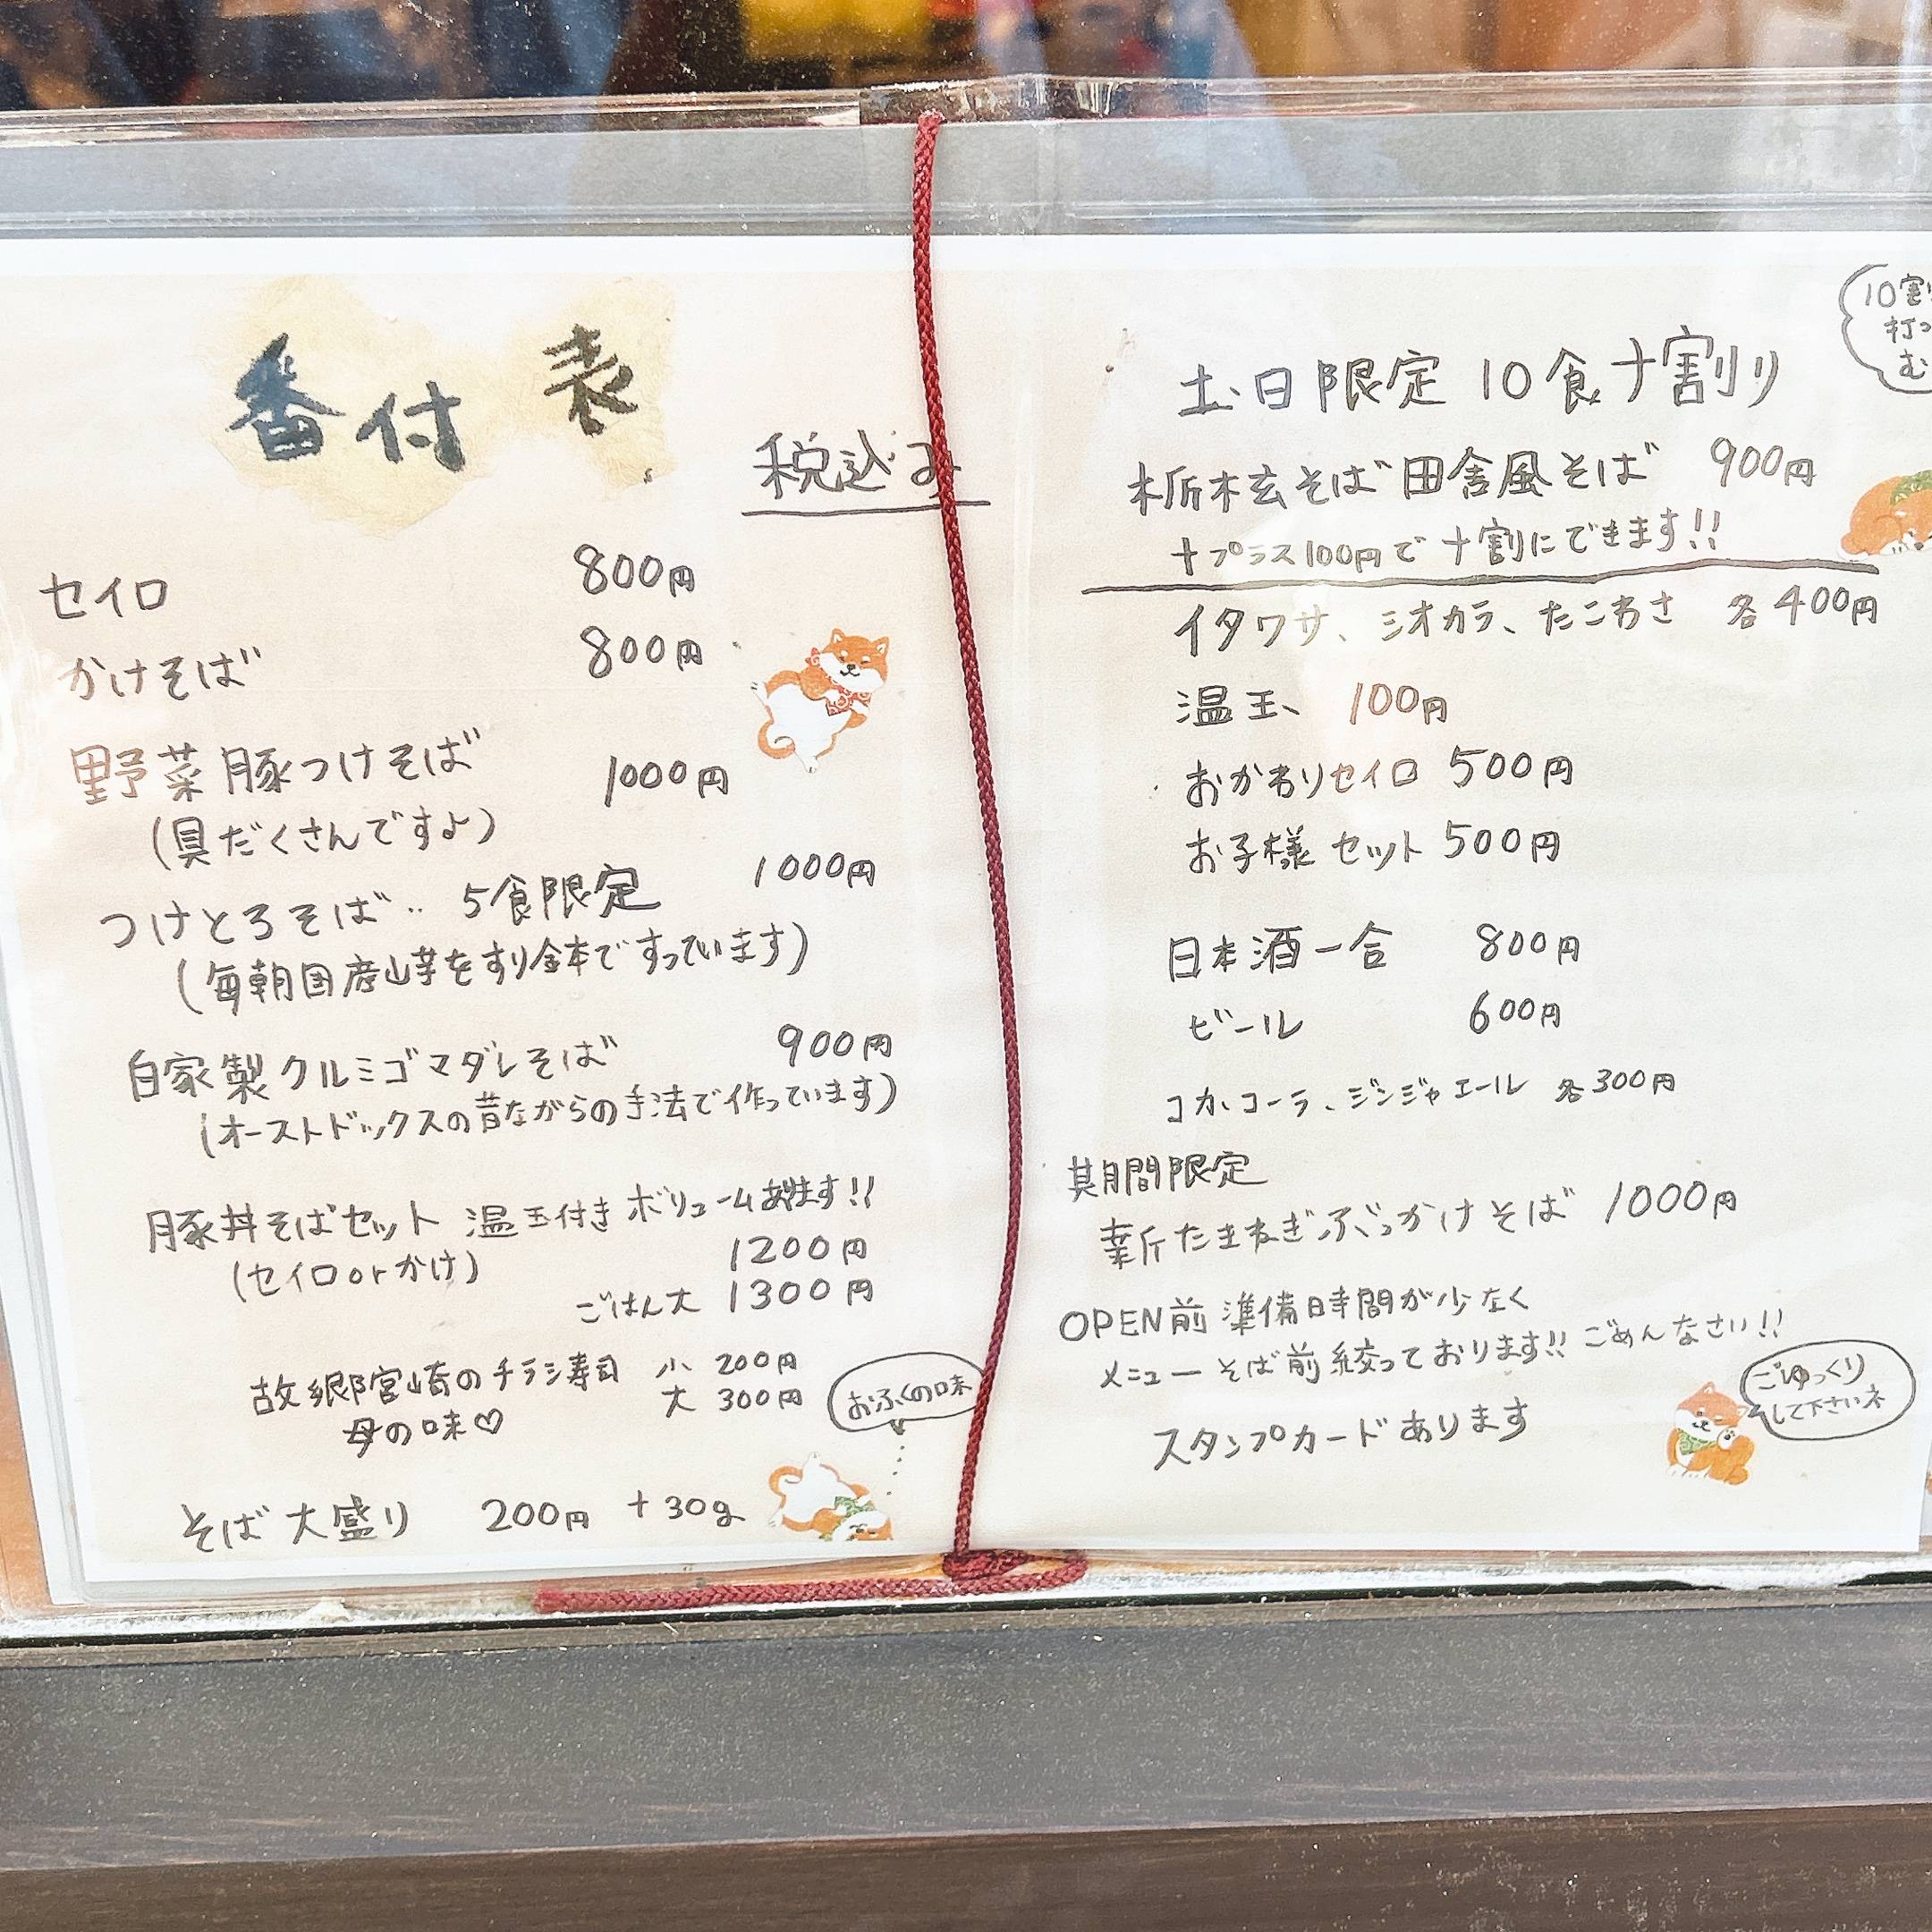 番付表
税込み
セイロ 800円
かけそば 800円
野菜豚つけそば 1000円
(具だくさんですよ)
つけとろそば‥ 5食限定 1000円
(毎朝国産山芋をすり鉢ですっています)
自家製クルミゴマダレそば 900円
(オーストドックスの昔ながらの手法で作っています)
豚丼そばセット 温玉付き ボリュームあります!!
(セイロorかけ) 1200円
ごはん大 1300円
故郷宮崎のチラシ寿司 小 200円
母の味♡ 大 300円
おふくの味
そば大盛り 200円 +30g
土、日限定 10食十割り
栃木玄そば 田舎風そば 900円
+プラス100円で十割にできます!!
イタワサ、シオカラ、たこわさ 各400円
温玉、 100円
おかわりセイロ 500円
お子様セット 500円
日本酒一合 800円
ビール 600円
コカ、コーラ、ジンジャエール 各300円
期間限定
新たまねぎぶっかけそば 1000円
OPEN前 準備時間が少なく
メニューそば前絞っております!! ごめんなさい!!
スタンプカードあります
ごゆっくり
して下さいネ